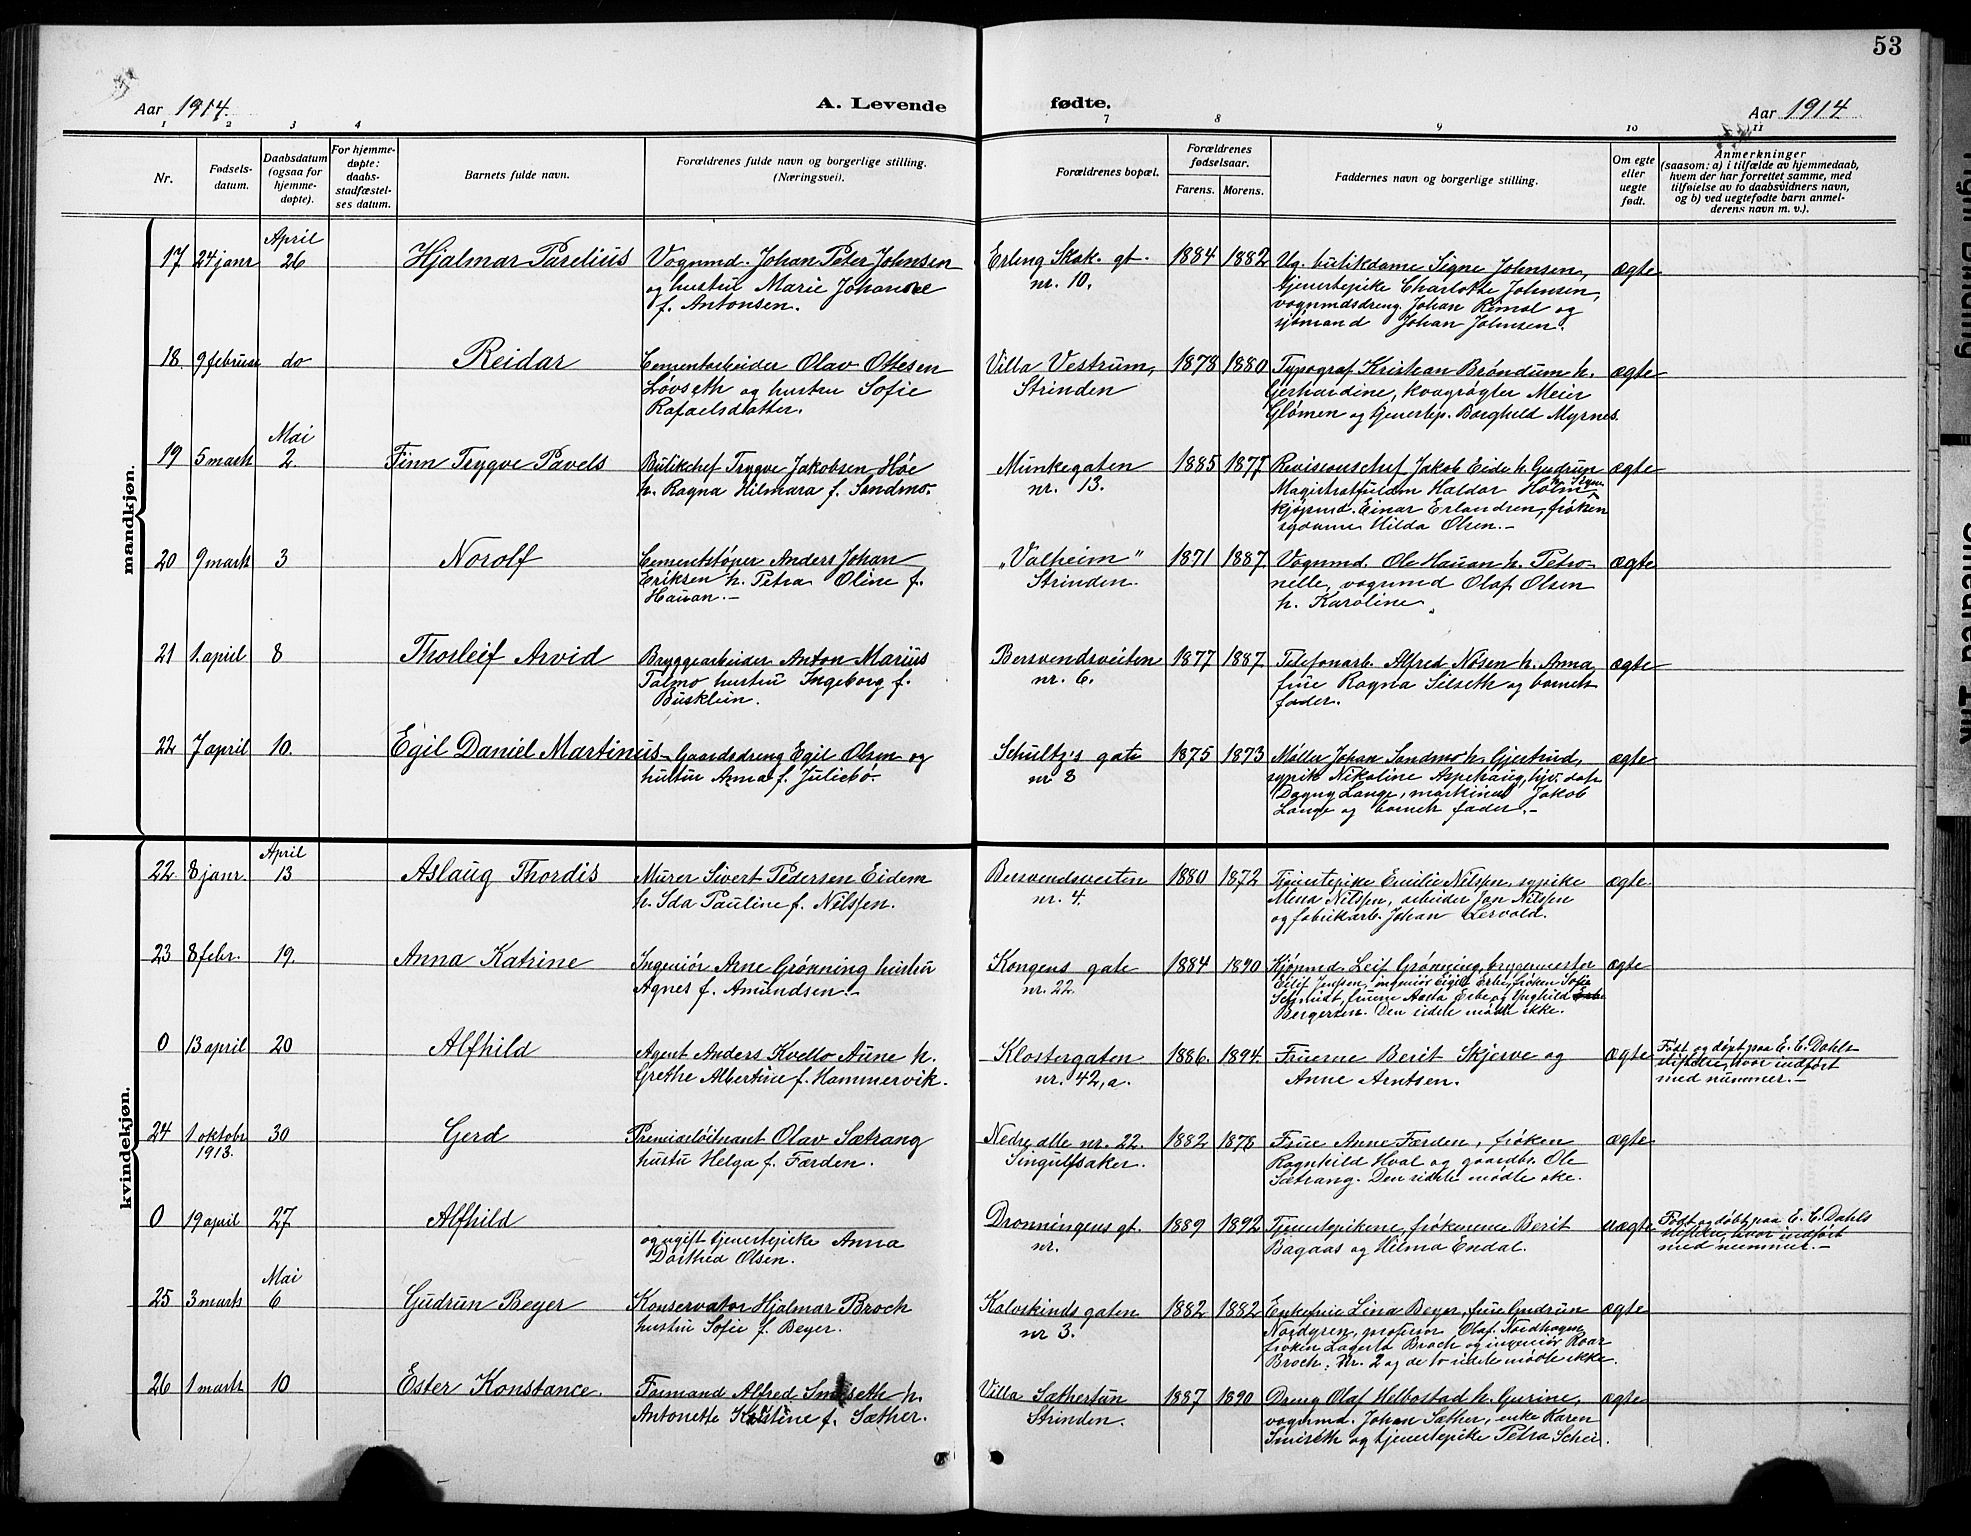 53
Aar 1914.
A. Levende
fødte.
Aar 1914
1 2 3 4 7 8 9 10 11
Nr.
Fødsels-
datum.
Daabsdatum
(ogsaa for
hjemme-
døpte).
For hjemme-
døpte:
daabs-
stadfæstel-
ses datum.
Barnets fulde navn.
Forældrenes fulde navn og borgerlige stilling.
(Næringsvei).
Forældrenes bopæl.
Forældrenes
fødselsaar.
Farens. Morens.
Faddernes navn og borgerlige stilling.
Om egte
eller
uegte
født.
Anmerkninger
(saasom: a) i tilfælde av hjemmedaab,
hvem der har forrettet samme, med
tilføielse av to daabsvidners navn,
og b) ved uegtefødte barn anmel-
derens navn m. v.).
mandkjøn.
April
17 24 janr 26 Hjalmar Parelius
Vognmd. Johan Peter Johnsen
og hustru Marie Johanne
f. Antonsen.
Erling Skak. gt.
nr. 10.
1884 1882
Ug. butikdame Signe Johnsen,
tjenestepike Charlotte Johnsen,
vognmdsdreng Johan Rimol og
sjømand Johan Johnsen.
ægte
18. 9 februar do Reidar
Cementarbeider Olav Ottesen
Løvseth og hustru Sofie
Rafaelsdatter.
Villa Vestrum,
Strinden
1878 1880
Typograf Kristian Brøndum h.
Gerhardine, kvægrøgter Meier
Glømen og tjenestep. Borghild Myrnes.
ægte
Mai
19 5 marts 2. Finn Trygve Pavels
Butikchef Trygve Jakobsen Høe
h. Ragna Hilmara f. Sandmo.
Munkegaten
nr. 13.
1885 1877
Revisionschef Jakob Eide h. Gudrun
Magistratfuldm Haldor Holm
kjøpmd. Einar Erlandsen, frøken
sydame Hilda Olsen.-
ægte
20 9 marts 3 Norolf
Cementstøper Anders Johan
Eriksen h. Petra Oline f.
Hauan.-
"Valheim"
Strinden.
1871 1887
Vognmd. Ole Hauan h. Petro-
nelle, vognmd Olaf Olsen
h. Karoline.
ægte
21 1. april 8 Thorleif Arvid
Bryggearbeider Anton Marius
Talmo hustru Ingeborg f.
Busklein.
Bersvendsveiten
nr. 6.
1877 1887
Telefonarb. Alfred Nosen h. Anna,
frue Ragna Silseth og barnets
fader.
ægte
22 7 april 10. Egil Daniel Martinus
Gaardsdreng Egil Olsen og
hustru Anna f. Juliebø.
Schultz's gate
nr 8
1875 1873
Møller Johan Sandmo h. Gjertrud,
sypik Nikoline Aspehaug, hjv. datr
Dagny Lange, maskinist Jakob
Lange og barnets fader.-
ægte
kvindekjøn.
April
22 8 janr. 13 Aslaug Thordis
Murer Sivert Pedersen Eidem
h. Ida Pauline f. Nilssen.
Bersvendsveiten
nr. 4.
1880 1872
Tjenestepike Emilie Nilssen, sypike
Mena Nilssen, arbeider Jon Nilssen
og fabrikarb. Johan Lervold.
ægte.
23 8 febr. 19. Anna Katrine
Ingeniør Arne Grønning hustru
Agnes f. Amundsen.-
Kongens gate
nr. 22.
1884 1890
Kjøpmd. Leif Grønning, bryggemester
Eilif Jenssen, ingeniør Eigil Erbe, frøken Sofie
Schmidt, fruene Aasta Erbe og Inghild Erbe
Bergersen. Den sidste mødte ikke.
ægte
0 13 april 20 Alfhild
Agent Anders Kvello Aune h.
Grethe Albertine f. Hammervik.
Klostergaten
nr. 42, a.
1886. 1894.
Fruerne Berit Skjerve og
Anne Arntsen.
ægte
Født og døpt paa E. C. Dahls
stiftelse, hvor indført
med nummer.-
24 1 oktobr 30 Gerd
1913.
Premiærløitnant Olav Sætrang
hustru Helga f. Færden.
Nedre alle nr. 22.
Singulfsaker.
1882 1878
Frue Anne Færden, frøken
Ragnhild Hval og gaardbr. Ole
Sætrang. Den sidste mødte ikke.
ægte
0 19 april 27 Alfhild
og ugift tjenestepike Anna
Dorthea Olsen.
Dronningens gt.
nr.
1889 1892
Tjenestepikene, frøkenene Berit
Bagaas og Hilma Endal.
uægte
Født og døbt paa E. C. Dahls
stiftelse, hvor indført
med nummer.-
Mai
25 3 marts 6 Gudrun Beyer
Konservator Hjalmar Broch
hustru Sofie f. Beyer.
Kalvskinds gaten
nr 3.
1882 1882
Enkefrue Lina Beyer, frue Gudrun
Nordgren, professor Olaf Nordhagen
frøken Lagerta Broch og ingeniør Roar
Broch. Nr. 2 og de to sidste mødte ikke.
ægte
26 1 marts 10 Ester Konstance.
Formand Alfred Smiseth h.
Antonette Kristine f. Sæther.
Villa Sæthertun
Strinden.
1887 1890
Dreng Olaf Helbostad h. Gurine,
vognmd. Johan Sæther, enke Karen
Smiseth og tjenestepike Petra Schei.
ægte